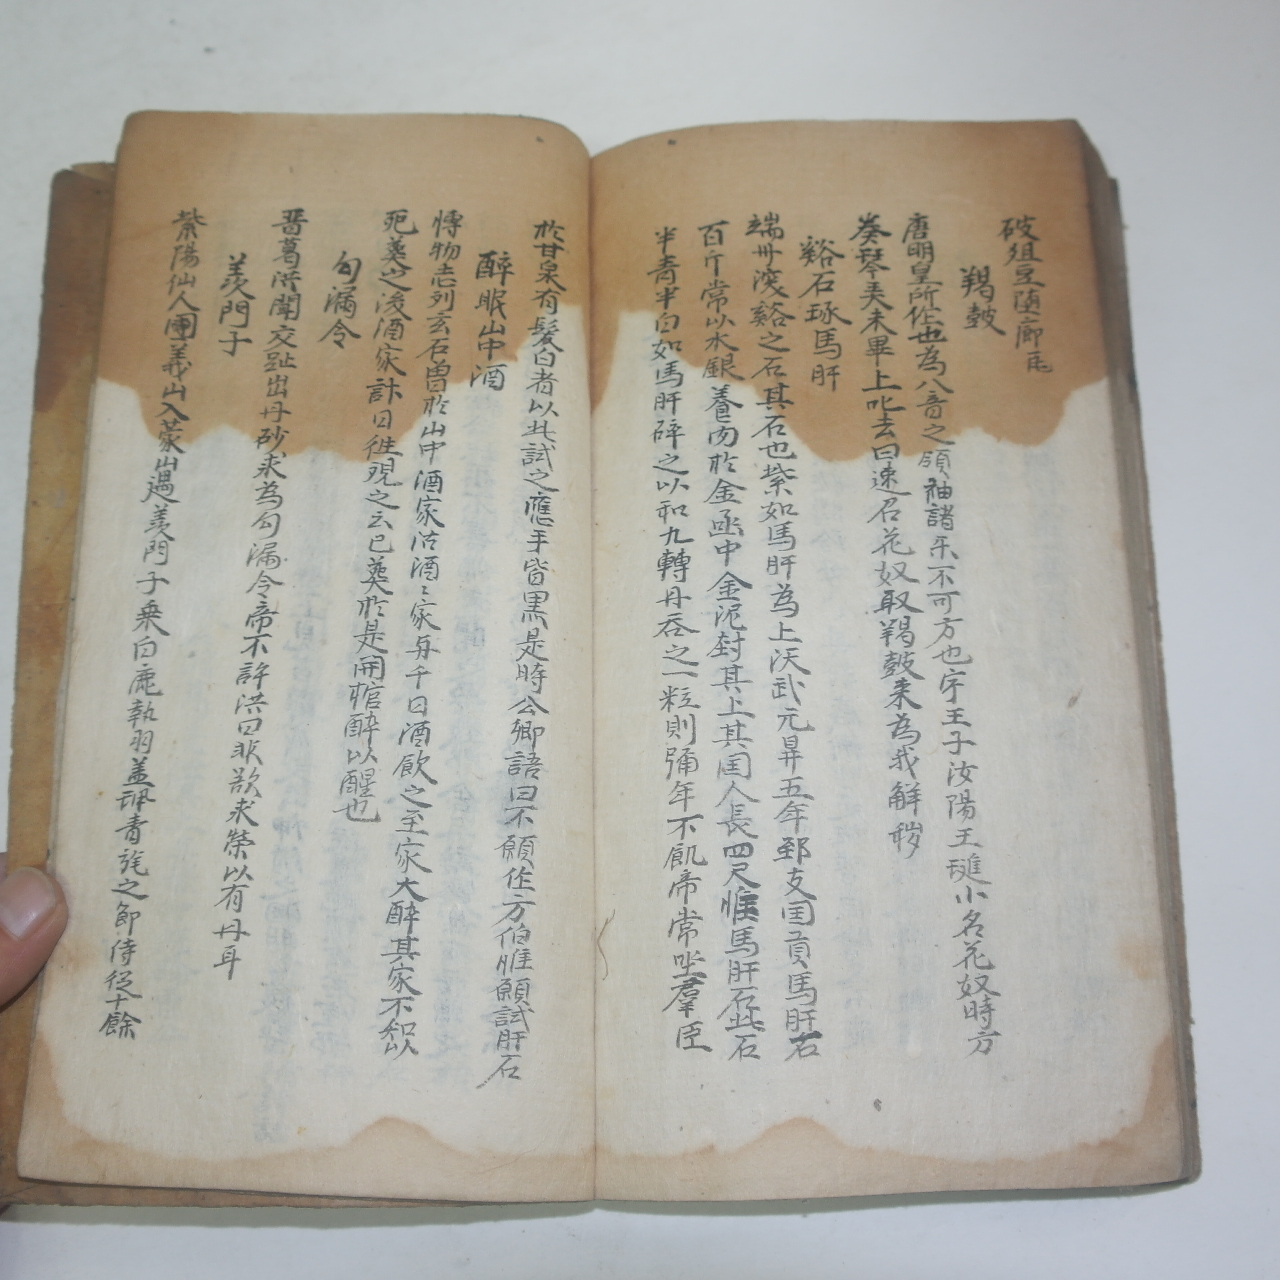 破俎豆墮廊瓦
羯鼓
唐明皇所作也為八音之領袖諸乐不可方也宇王子汝陽王璡小名花奴時方
奏琴美未畢上叱去曰速召花奴取羯鼓来為我解穢
谿石琢馬肝
端州深谿之石其石也紫如馬肝為上汱武元昇五年郅支国貢馬肝石
百斤常以水銀養肉於金函中金泥封其上其国人長四尺惟馬肝石此石
半青半白如馬肝碎之以和九轉丹吞之一粒則弥年不飢帝常坐羣臣
於甘泉有髮白者以此試之應手皆黒是時公卿語曰不願作方伯惟願試肝石
醉眠山中酒
博物志列玄石曽於山中酒家沽酒〻家与千日酒飲之至家大醉其家不知以
死𦵏之後酒家計日徃視之云已𦵏於是開棺醉以醒也
勾漏令
晋葛洪聞交趾出丹砂求為勾漏令帝不許洪曰非欲求榮以有丹耳
羨門子
紫陽仙人周義山入蒙山遇羨門子乗白鹿執羽盖珮青旄之節侍從十餘